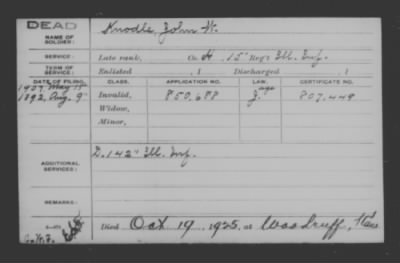 DEAD
NAME OF SOLDIER: Knodle, John W.
SERVICE: Late rank, Co. H, 15" Reg't Ill. Inf.
TERM OF SERVICE: Enlisted , 1 Discharged , 1
DATE OF FILING. CLASS. APPLICATION NO. LAW. CERTIFICATE NO.
1907, May 15 age
1892, Aug. 9" Invalid, 850,688 J. 807,449
Widow,
Minor,
ADDITIONAL SERVICES: D. 142" Ill. Inf.
REMARKS:
Died Oct 19 1925, at Woodruff, Kans